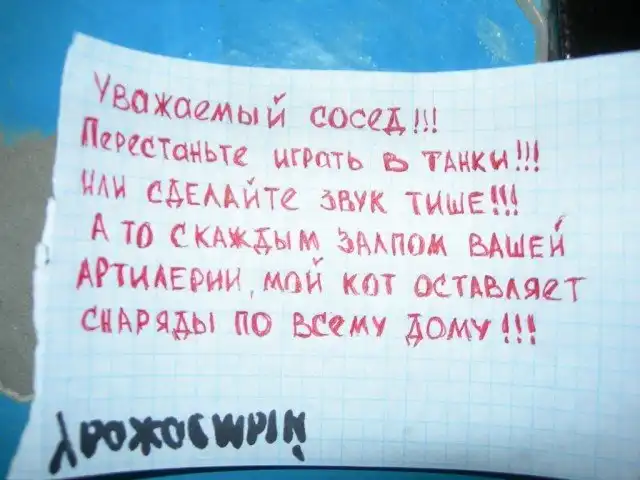 Уважаемый сосед!!!
Перестаньте играть в танки!!!
или СДЕЛАЙТе звук тише!!!
А то с каждым залпом вашей
АРТИЛЕРИИ, мой кот оставляет
снаряды по всему дому!!!